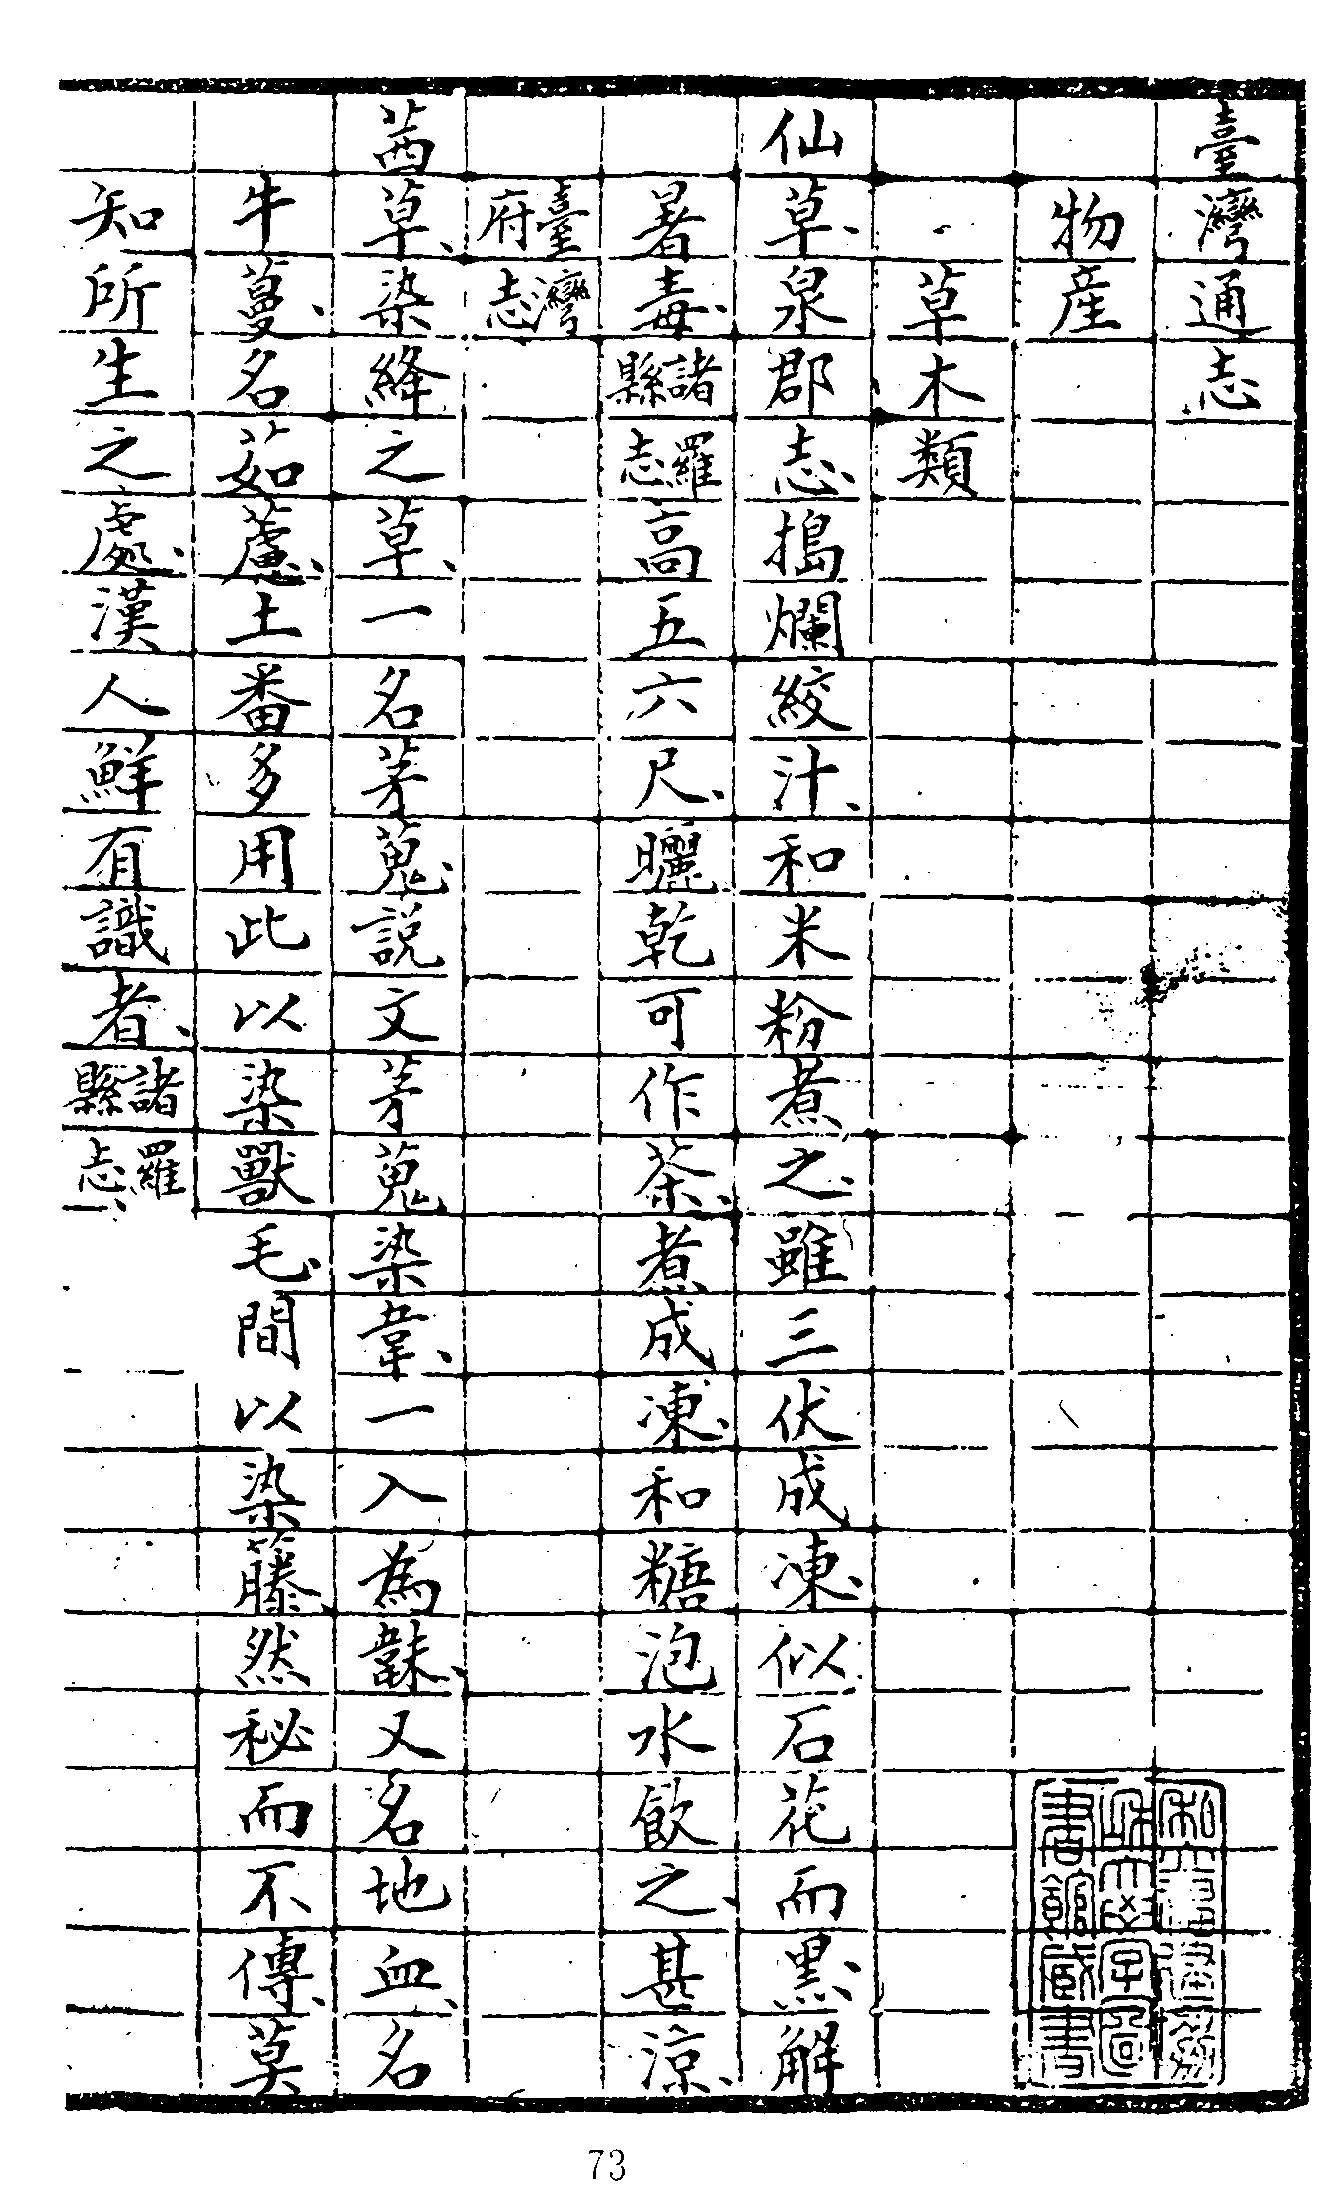 臺灣通志
物產
草木類
仙草、泉郡志、搗爛絞汁、和米粉煮之、雖三伏成凍、似石花而黑、解
暑毒、諸羅縣志高五六尺、曬乾可作茶、煮成凍、和糖泡水飲之、甚涼、
臺灣府志
茜草、染絳之草、一名茅蒐、説文茅蒐染韋、一入為韎、又名地血、名
牛蔓、名茹藘、土番多用此以染獸毛、間以染籐、然秘而不傳、莫
知所生之處、漢人鮮有識者、諸羅縣志、
書館藏書
73